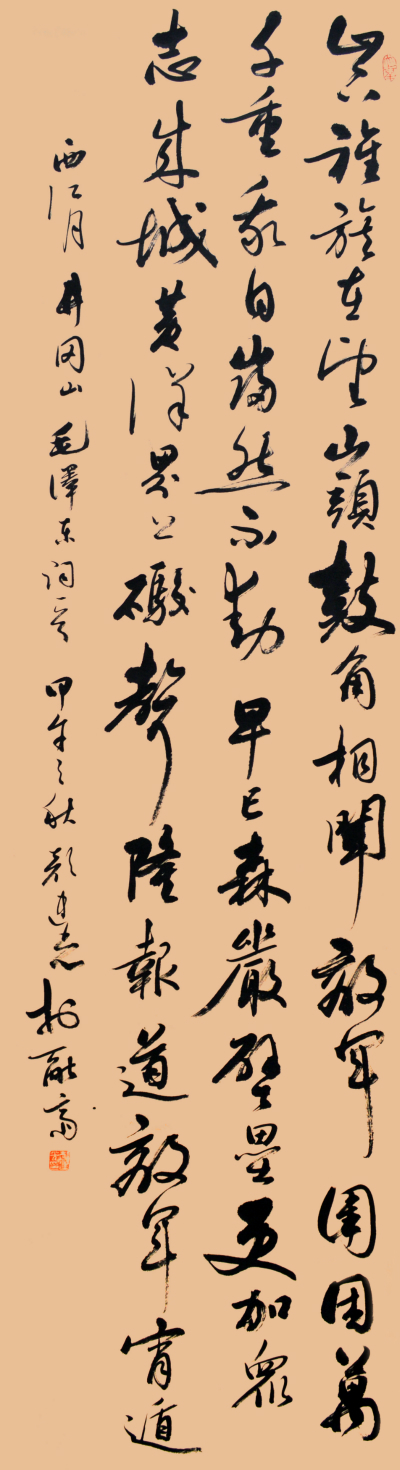 山下旌旗在望山頭鼓角相聞敵軍圍困萬
千重我自巋然不動早已森嚴壁壘更加眾
志成城黄洋界上礮聲隆報道敵軍宵遁
西江月井岡山毛澤东词一首甲午之秋